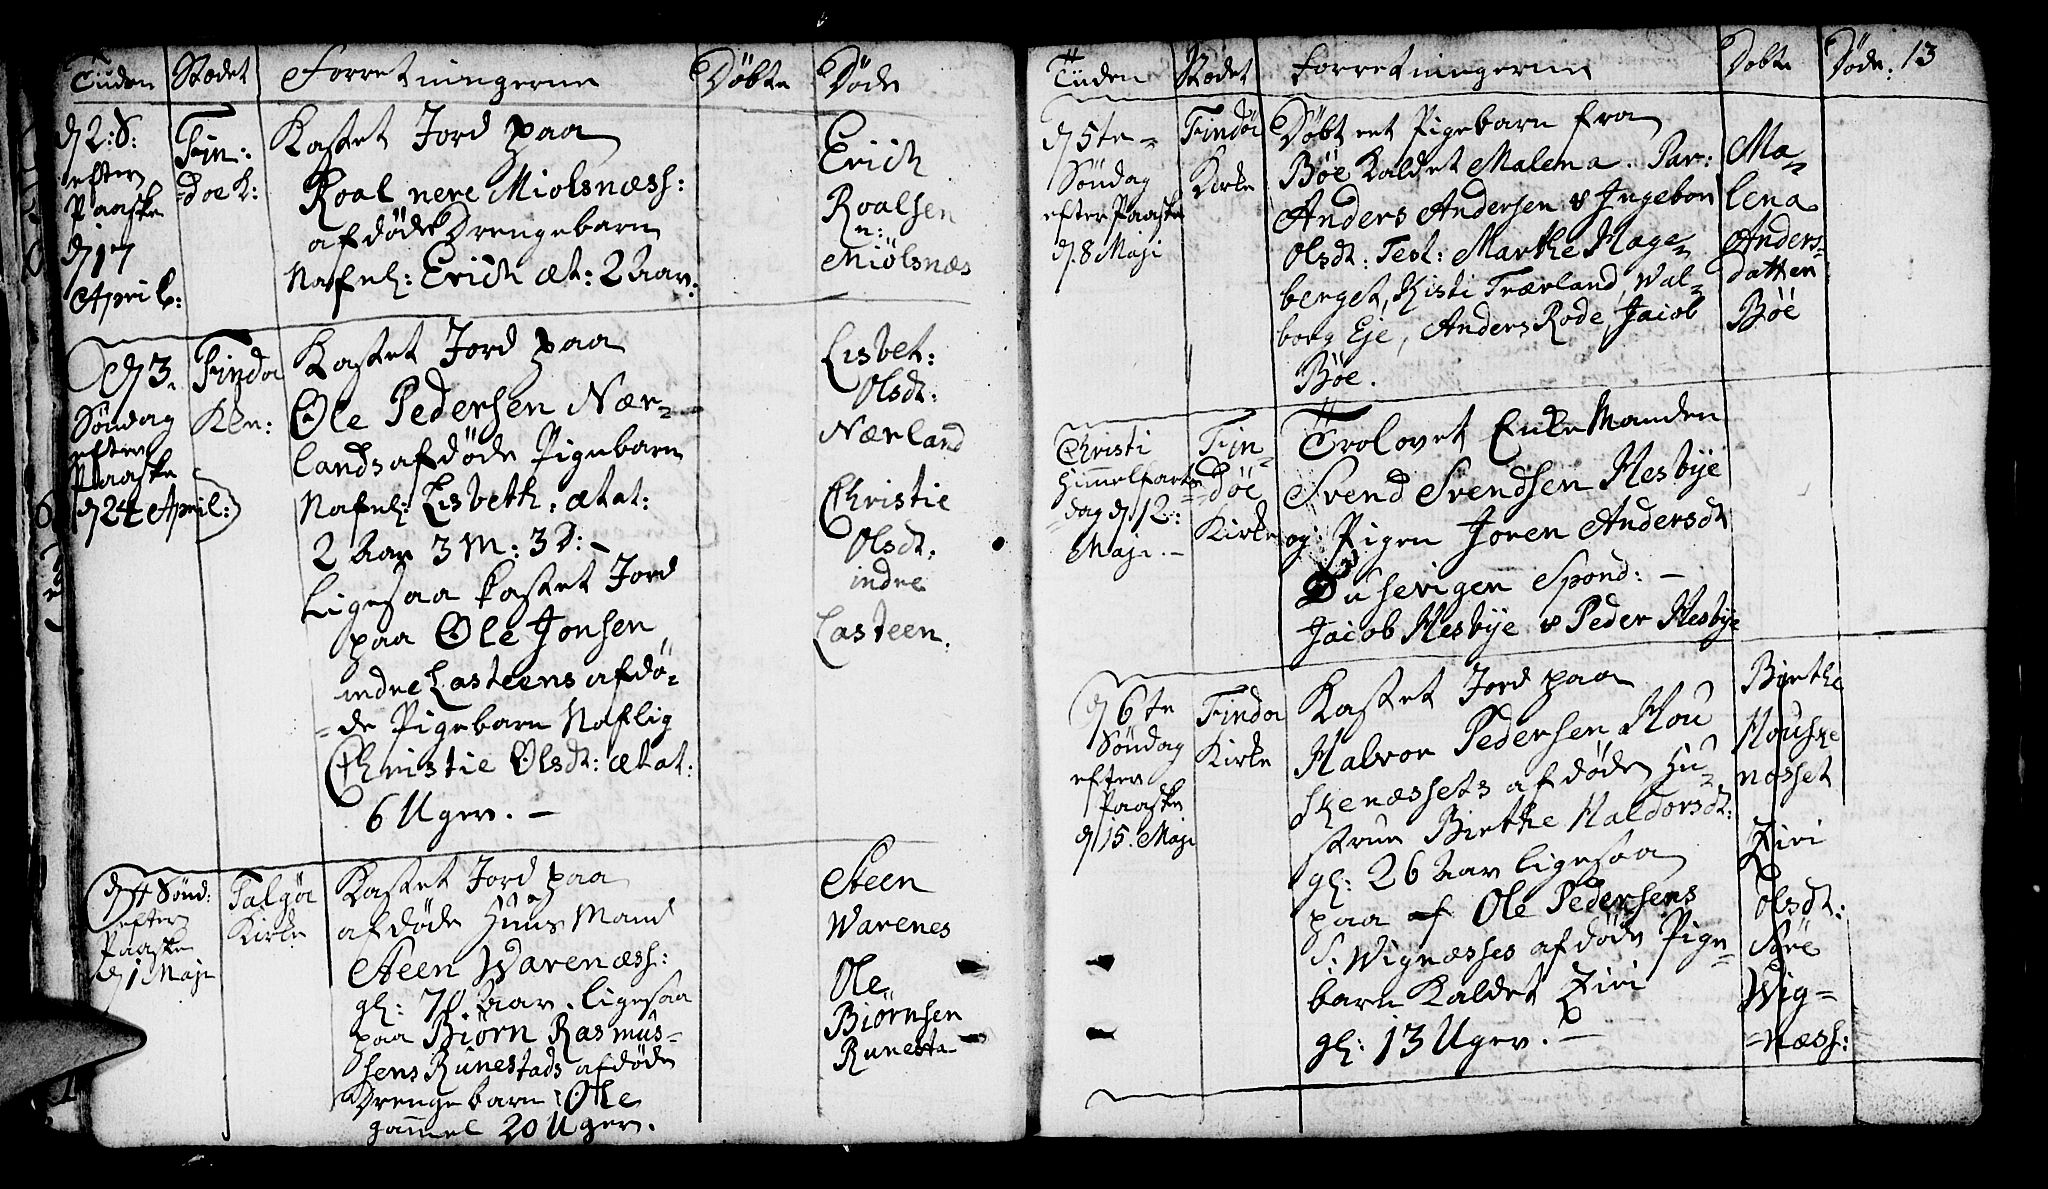 Tiiden Stædet Forretningerne Döbte Döde
d 2: S: efter Paaske d 17 April:
Fin:
=doe K:
Kastet Jord paa
Roal nere Miolsnæss:
afdöde Drengebarn
Nafnl: Erich æt: 2 Aar:
Erich
Roalsen
n:
Miölsnæs
d 3.
Söndag
efter
Paaske
d 24 April:
Findoe
Kke:
Kastet Jord paa
Ole Pedersen Nær-
lands afdöde Pigebarn
Nafnl: Lisbeth: ætat:
2 Aar 3 M: 3 D: –
Ligesaa kastet Jord
paa Ole Jonsen
indre Lasteens afdö-
=de Pigebarn Naflig
Christie Olsdt: ætat:
6 Uger. –
Lisbet:
Olsdt:
Nærland
Christie
Olsdt:
indre
Lasteen.
d 4 Sönd:
efter
Paaske
d 1 Maji
Talgöe
Kirke
Kastet Jord paa
afdöde Huus Mand
Steen Warenæss:
gl: 70 Aar. ligesaa
paa Biörn Rasmus-
sens Runestads afdöde
Drengebarn: Ole
gammel 20 Uger.
Steen
Warenes
Ole
Biörnsen
Runesta
Tiiden Stædet Forretningerne Döbte Döde: 13
d 5te-
Söndag
efter Paaske
d. 8 Maji
Findöe
Kirke
Döbt eet Pigebarn fra
Böe Kaldet Malena. Par:
Anders Andersen & Ingebor
Olsdt: Test: Marthe Hage-
berget, Kisti Trærland, Wal-
borg Eje, Anders Rode, Jacob
Böe.
Ma-
lena
Anders-
datter
Böe
Christi
Himmelfarts
=dag d 12:
Maji. –
Fin-
=döe
Kirke
Trolovet Enke Manden
Svend Svendsen Hesbye
og Pigen Joren Andersdt
Dusevigen Spond: –
Jacob Hesbye & Peder Hesbye
d 6te
Söndag
efter
Paaske
d 15. Maji
Findoe
Kirke
Kastet Jord paa
Halvor Pedersen Hou
skenæssets afdöde Hu-
strue Birthe Haldorsdt:
gl: 26 Aar ligesaa
paa af Ole Pedersens
S: Wignæsses afdöde Pige-
barn Kaldet Ziri
gl: 13 Uger. –
Birthe
Houske
næsset
Ziri
Olsdt:
Söre
Wig=
=næss: